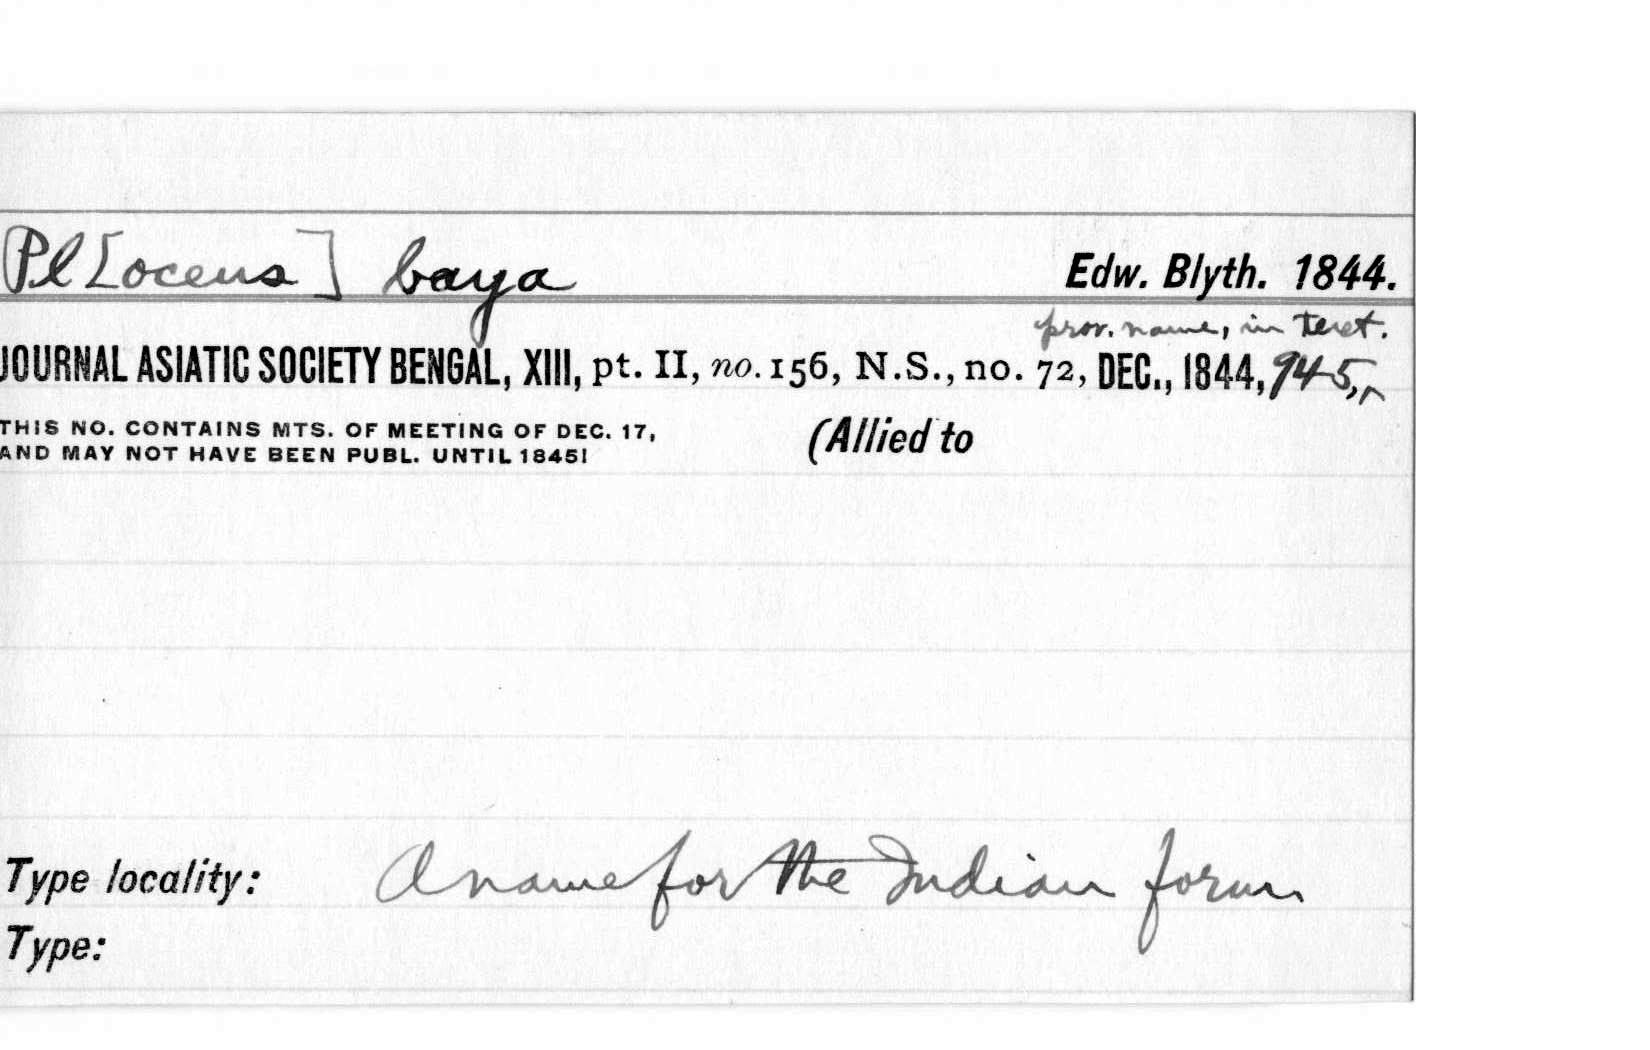 Pl[oceus] baya Edw. Blyth. 1844.
prov. name, in text.
JOURNAL ASIATIC SOCIETY BENGAL, XIII, pt. II, no. 156, N.S., no. 72, DEC., 1844, 945,^
THIS NO. CONTAINS MTS. OF MEETING OF DEC. 17, (Allied to
AND MAY NOT HAVE BEEN PUBL. UNTIL 1845!
Type locality: A name for the Indian form
Type: